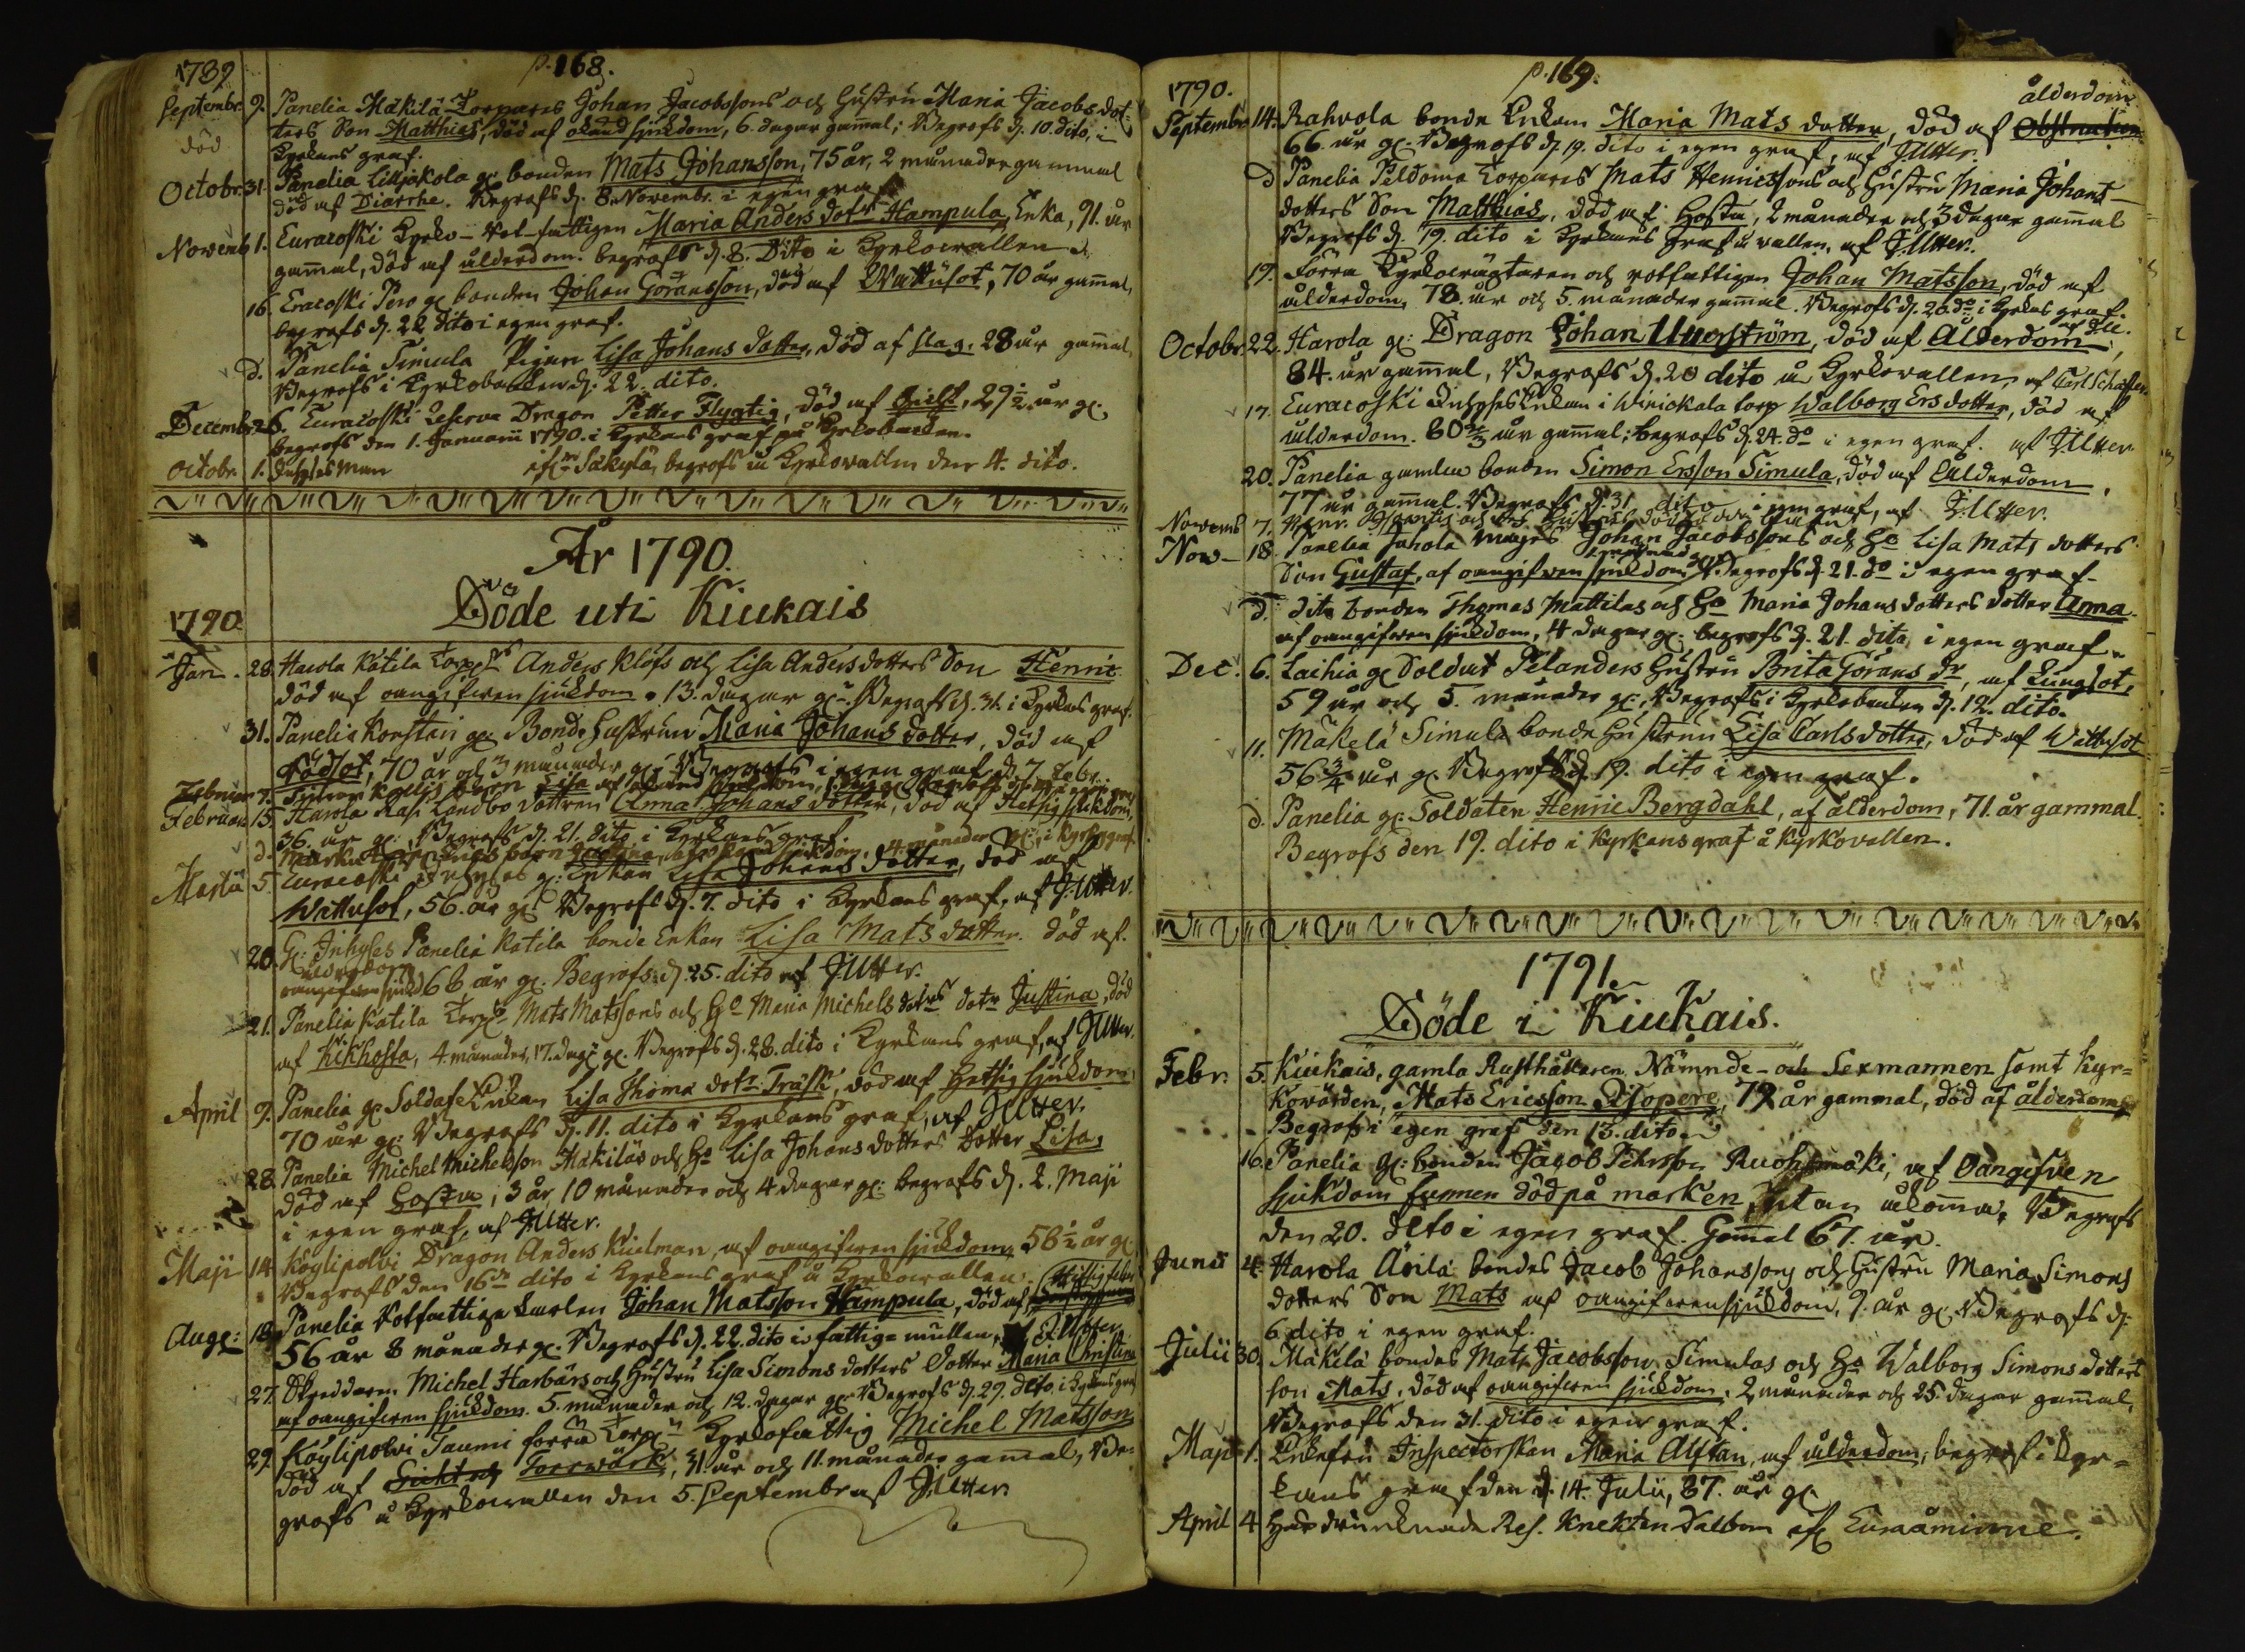 1789
p. 168.
Septembr. 9. Panelia Mäkilä Torpares Johan Jacobssons och Hustru Maria Jacobs dot:
död
ters Son Matthias, död af okänd sjukdom, 6. dagar gammal; Begrofs d. 10. dito, i
Kyrkans graf.
Octobr. 31. Panelia Lilljakola gl. bonden Mats Johansson, 75 år, 2 månader gammal
död af Diarrhe. Begrofs d. 8. Novembr. i egen graf
Novemb. 1. Euracoski Kyrko- Rot-fattigen Maria Anders dotr Hampula, Enka, 91. år
gammal, död af ålderdom. begrofs d. 8. Dito i Kyrkowallen
16. Eracoski Pero gl. bonden Johan Göransson, död af Wattusot, 70 år gammal,
begrofs d. 22 dito i egen graf.
d. Panelia Simula Pigan Lisa Johans dotter, död af slag, 28 år gammal
Begrofs i Kyrkobacken d. 22. dito.
Decembr. 26. Euracoski Reserva Dragon Petter Flygtig, död af Gickt, 29 1/2 år gl.
begrofs den 1. Januarii 1790. i Kyrkans graf på Kyrkobacken.
Octobr. 1. Inhyses Man ifr Säkylä, begrofs å Kyrkowallen den 4. dito.
År 1790.
Döde uti Kiukais
1790
Jan. 28. Harola Katila Torps Anders Klöfs och Lisa Anders dotters Son Henric
död af oangifwen sjukdom. 13. dagar gl. Begrafs d. 31. i Kyrkans graf.
31. Panelia Konstari gl. Bonde Hustrun Maria Johans dotter, död af
Rödsot, 70 år och 3 månader gl. Begrofs i egen graf d. 7 Febr.
Februar 7.
Februarii 13. Harola Rasi Landbo dottren Anna Johans dotter, död af Hetsig sjukdom,
36. år gl. Begrofs d. 21. dito i Kyrkans graf.
d.
Martii 5. Euracoski Inhyses gl. Enkan Lisa Johans dotter, död af
Wattusot, 56. år gl. Begrofs d. 7. dito i Kyrkans graf, af J. Utter.
20. Gl. Inhyses Panelia Katila bonde Enkan Lisa Mats dotter. död af.
ålderdom
oangifwen sjukd 68 år gl. Begrofs d. 25. dito af J. Utter.
21. Panelia Katila Torps Mats Matssons och Ho Maria Michels dotrs dotr Justina, död
af Kikhosta, 4 månader, 17. dagr gl. Begrofs d. 28. dito i Kyrkans graf, af J. Utter.
April 9. Panelia gl. Soldate Enkan Lisa Thoma dotr Träsk, död af Hettsig sjukdom,
70 år gl. Begrofs d. 11. dito i Kyrkans graf, af J. Utter.
28. Panelia Michel Michelsson Mäkiläs och Ho Lisa Johans dotters dotter Lisa,
död af Hosta, 3 år, 10 månader och 4 dagar gl. begrofs d. 2. Maji
i egen graf, af J. Utter.
Maji 14. Köylipolvi Dragon Anders Kuelman, af oangifwen sjukdom, 58 1/2 år gl.
Begrofs den 16 dito i Kyrkans graf å Kyrkowallen.
Aug: 18. Panelia Rotfattiga karlen Johan Matsson Hampula, död af
56 år 8 månader gl. Begrofs d. 22. dito i fattig=mullen, af J. Utter
27. Skreddaren Michel Harbärs och Hustru Lisa Simons dotters dotter Maria Christina
af oangifwen sjukdom. 5. månader och 12. dagar gl. Begrofs d. 29. dito, i Kyrkans graf
29. Köylipolvi Taumi förra Torpn Kyrkofattig Michel Matsson
död af Gickt och Torrwärk, 31. år och 11. månader gamal, Be=
grofs å Kyrkowallen den 5. Septembr. af J. Utter
1790.
p. 169.
ålderdom
Septembr. 14. Rahvola bonde Enkan Maria Mats dotter, död af Obstruction
66. år gl. Begrofs d. 19. dito i egen graf, af J. Utter.
d Panelia Peldoma Torpares Mats Henricssons och Hustru Maria Johans-
dotters Son Matthias, död af Hosta, 2 månader och 3 dagar gammal
Begrofs d. 19. dito i Kyrkans graf å vallen, af J. Utter.
19. Förra Kyrkowägtaren och rotfattigen Johan Matsson, död af
ålderdom, 78. år och 5. månader gammal. Begrofs d. 26. do i Kyrkans graf.
Octobr. 22. Harola gl. Dragon Johan Unerström, död af Ålderdom,
84. år gammal, Begrofs d. 20 dito å Kyrkowallen, af Carl
17. Euracoski Inhyses Enkan i Winickala torp Walborg Ers dotter, död af
ålderdom. 60 2/3 år gammal; begrofs d. 24. do i egen graf. af J. Utter
20. Panelia gamla bonden Simon Ersson Simula, död af Ålderdom.
77 år gammal. Begrofs d. 31. dito i egen graf, af J. Utter.
Novemb 7.
Nov- 18. Panelia Juhola mågs Johan Jacobssons och Ho Lisa Mats dotters
Son Gustaf, af oangifwen sjukdom, Begrofs d. 21. do i egen graf.
d. dito bonden Thomas Mattilas och Ho Maria Johans dotters dotter Anna
af oangifwen sjukdom, 4 dagar gl. begrofs d. 21. dito i egen graf.
Dec. 6. Laihia gl Soldat Pelanders Hustru Brita Görans dr, af Lungsot,
59 år och 5. månader gl., Begrofs i Kyrkobacken d. 12. dito.
11. Mäkelä Simula bonde Hustrun Lisa Carls dotter, död af Wattusot
56 3/4 år gl. Begrofs d. 19. dito i egen graf.
d. Panelia gl. Soldaten Henric Bergdahl, af ålderdom, 71. år gammal.
Begrofs den 19. dito i Kyrkans graf å Kyrkovallen.
1791.
Döde i Kiukais.
Febr. 5. Kiukais, gamla Rusthållaren, Nämnde- och Sexmannen samt Kyr=
kowärden, Mats Ericsson Disopere, 79 år gammal, död af ålderdom,
Begrofs i egen graf den 13. dito.
16. Panelia gl. bonden Jacob Pehrsson Ruohomäki, af Oangifven
sjukdom funnen död på marken, utan åkomma, Begrofs
den 20. dito i egen graf. Gammal 67. år.
Junii 4. Harola Äoila bondes Jacob Johanssons och Hustru Maria Simons
dotters Son Mats af oangifwen sjukdom, 9. år gl. Begrofs d:
6. dito i egen graf.
Julii 30. Mäkilä bondes Mats Jacobsson Simulas och Ho Walborg Simons dotters
son Mats, död af oangifwen sjukdom, 2 månader och 25. dagar gammal,
Begrofs den 31. dito i egen graf.
Maji 1. Enkefru Inspectorskan Maria Alftan, af ålderdom, begrofs i Kyr=
kans graf den d. 14. Julii, 87. år gl
April 4 Här drunknade Res. Knekten Dalbom ifr Euraåminne.